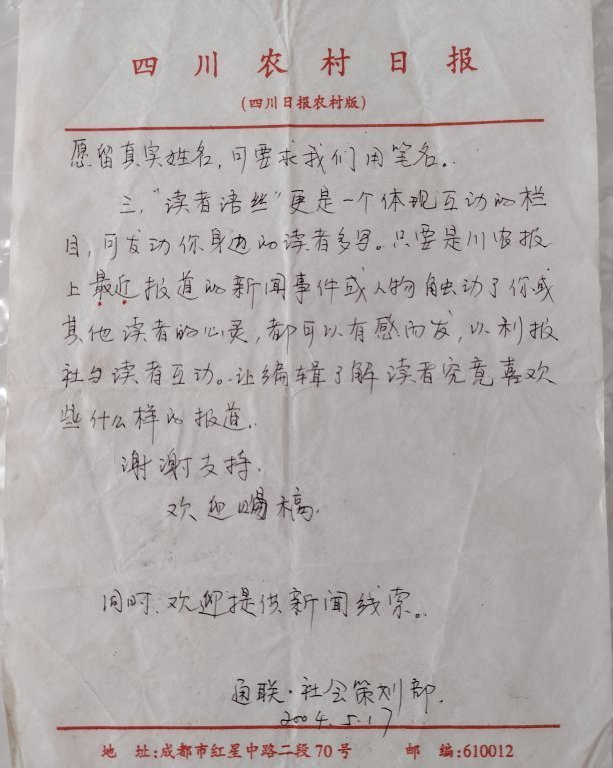 四川农村日报
(四川日报农村版)
愿留真实姓名,可要求我们用笔名。
三,"读者语丝"更是一个体现互动的栏
目,可发动你身边的读者多写。只要是川农报
上最近报道的新闻事件或人物触动了你或
其他读者的心灵,都可以有感而发,以利报
社与读者互动。让编辑了解读者究竟喜欢
些什么样的报道。
谢谢支持.
欢迎赐稿.
同时.欢迎提供新闻线索。
通联·社会策划部.
2004.5.17
地 址:成都市红星中路二段70号 邮 编:610012